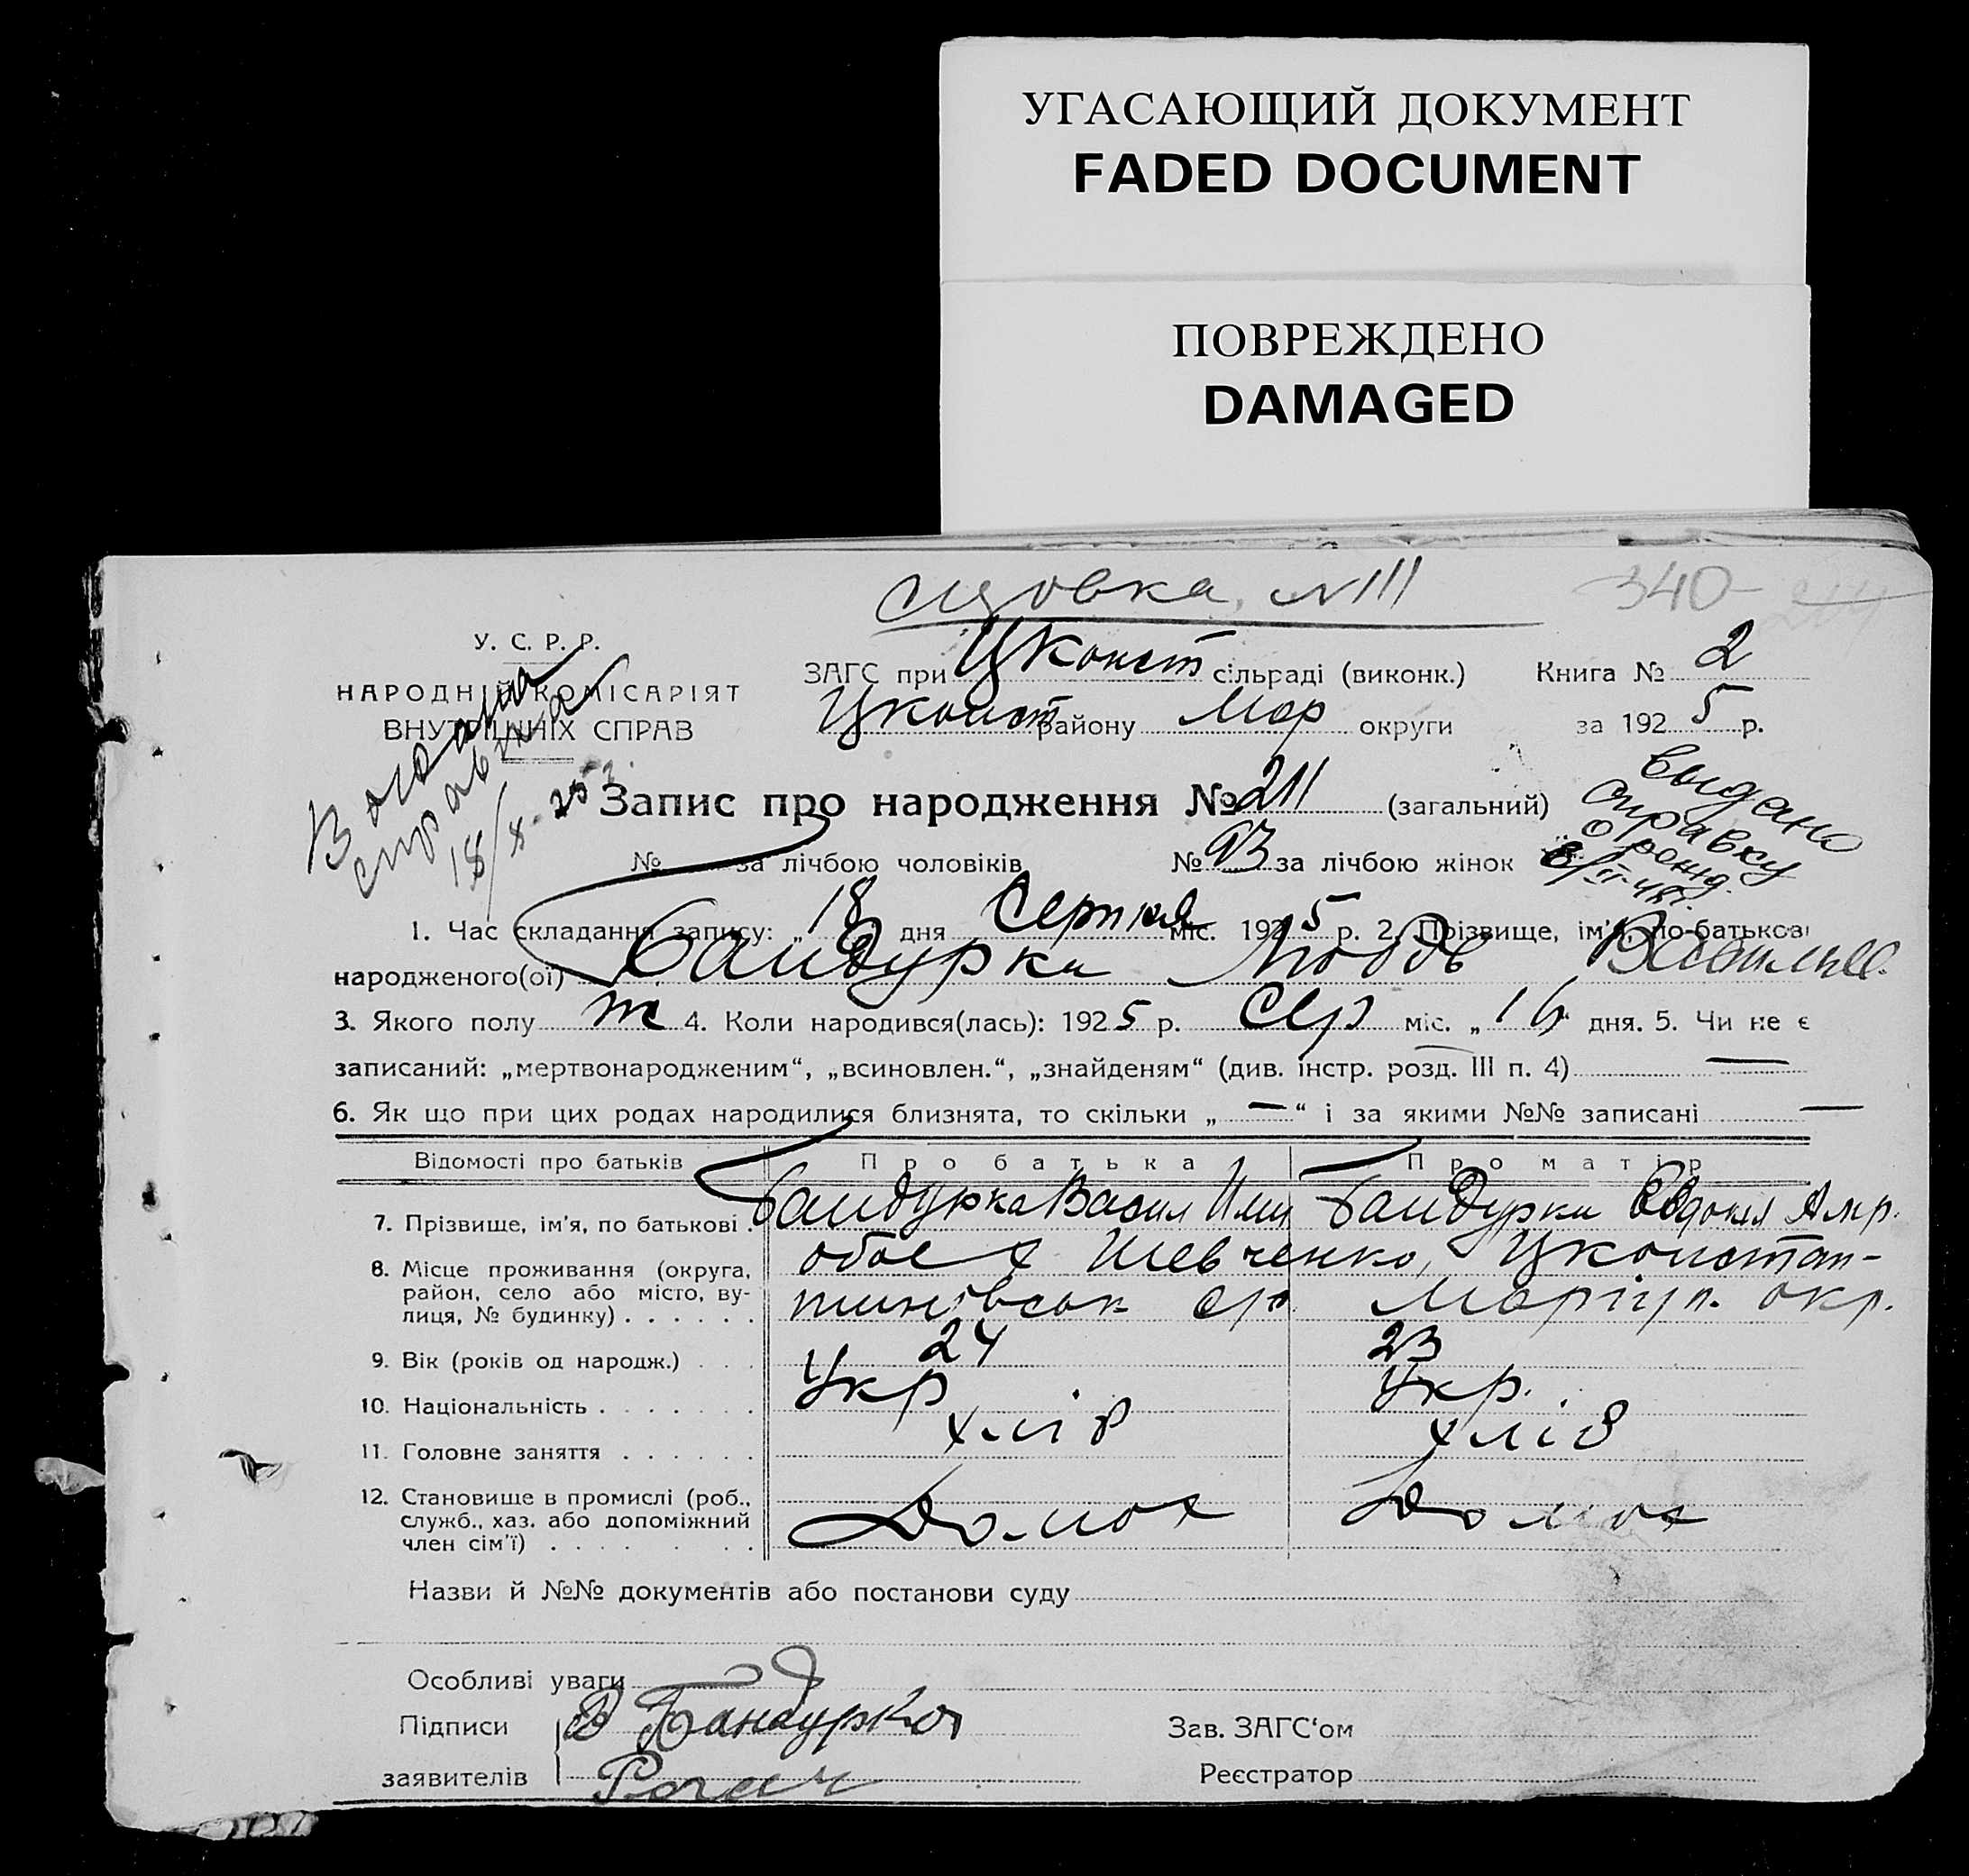 УГАСАЮЩИЙ ДОКУМЕНТ
FADED DOCUMENT
ПОВРЕЖДЕНО
DAMAGED
№ 111
340
У. С. Р. Р.
НАРОДНІЙ КОМІСАРІЯТ
ВНУТРІШНІХ СПРАВ
ЗАГС при Цконст сільраді (виконк.) Книга № 2
Цконст району Мар округи за 1925 р.
справка
18/X-25
Запис про народження № 211 (загальний)
№ за лічбою чоловіків № 93 за лічбою жінок
выдано
справку
о рожд.
1. Час складання запису: „18" дня Серпня міс. 1925 р. 2. Прізвище, ім'я, по-батькові
народженого(ої) Бандурка Любов Васильев.
3. Якого полу ж 4. Коли народився(лась): 1925 р. Сер міс. „16" дня. 5. Чи не є
записаний: „мертвонародженим“, „всиновлен.“, „знайденям“ (див. інстр. розд. III п. 4) —
6. Як що при цих родах народилися близнята, то скільки „—“ і за якими №№ записані —
Відомості про батьків Про батька Про матір
7. Прізвище, ім'я, по батькові . Бандурка Васил Бандурка Евдокия
8. Місце проживання (округа, обое х Шевченко, Цконстан-
район, село або місто, ву- тинівськ Маріуп. окр.
лиця, № будинку) . . . . . .
9. Вік (років од народж.) . . . 24 23
10. Національність . . . . . . . Укр Укр.
11. Головне заняття . . . . . . хліб хліб
12. Становище в промислі (роб., Домох Домох
служб., хаз. або допоміжний
член сім'ї) . . . . . . .
Назви й №№ документів або постанови суду
Особливі уваги
Підписи В Бандурка Зав. ЗАГС‘ом
заявителів Рогач Реєстратор